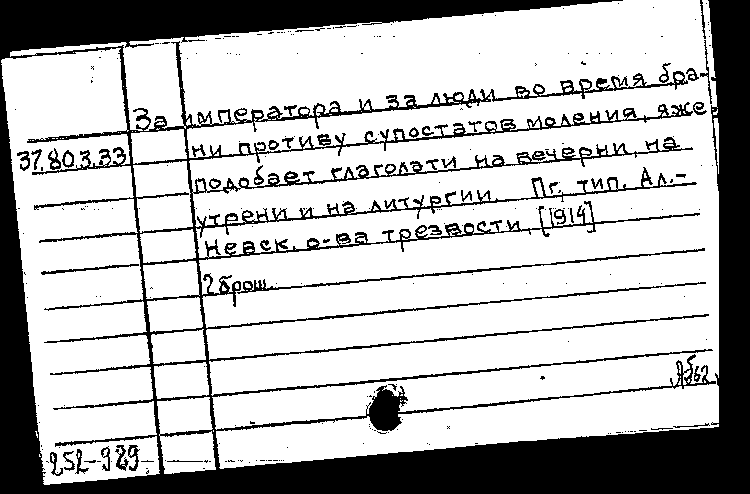 За императора и за люди во время бра-
37.80.3.33 ни противу супостатов моления, яже
подобает глаголати на вечерни, на
утрени и на литургии. Пг, тип. Ал.-
Невск. о-ва трезвости, [1914]
2 брош.
252-929